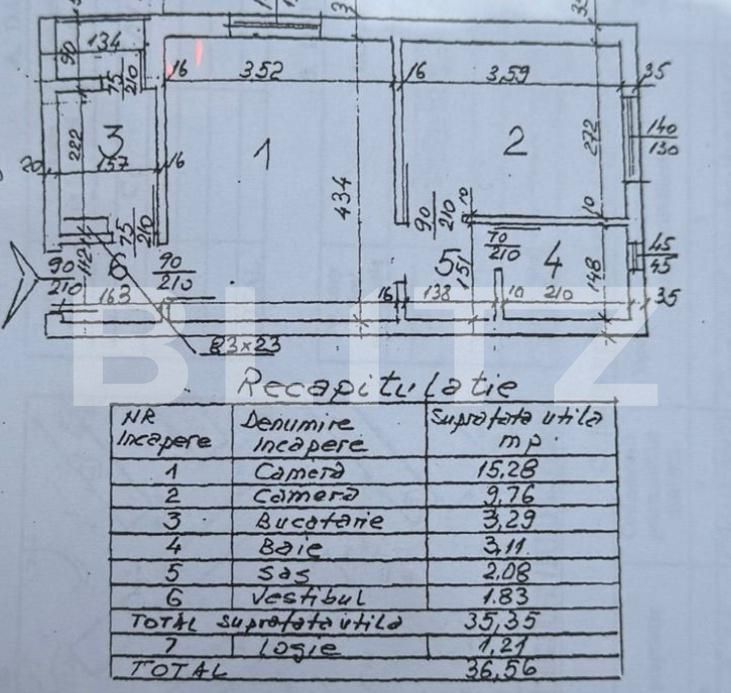 134
90
75
210
16
3,52
16
3,59
35
3
222
1
2
272
140
130
20
157
16
434
90
210
10
10
75
210
5
151
70
210
4
148
45
45
90
210
112
6
90
210
163
16
138
10
210
35
23x23
BLITZ
Recapitulatie
NR
Incapere
Denumire
Incapere
Suprafata utila
mp
1 Camera 15,28
2 Camera 9,76
3 Bucatarie 3,29
4 Baie 3,11
5 Sas 2,08
6 Vestibul 1.83
TOTAL suprafata utila 35,35
7 Logie 1,21
TOTAL 36,56